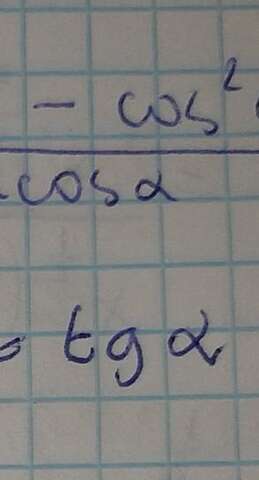 - cos²
cos α
= tg α